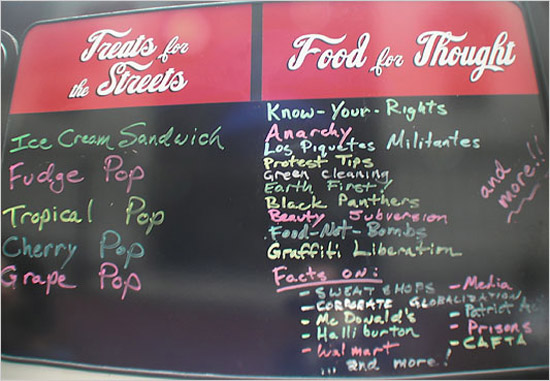 Treats for
the Streets
Ice Cream Sandwich
Fudge Pop
Tropical Pop
Cherry Pop
Grape Pop
Food for Thought
Know-Your-Rights
Anarchy
Los Piquetes Militantes
Protest Tips
Green cleaning
Earth First!
Black Panthers
Beauty Subversion
Food-Not-Bombs
Graffiti Liberation
and
more!!
Facts on:
- SWEAT SHOPS
- CORPORATE GLOBALIZATION
- McDonald's
- Halliburton
- Walmart
... and more!
- Media
- Patriot Act
- Prisons
- CAFTA